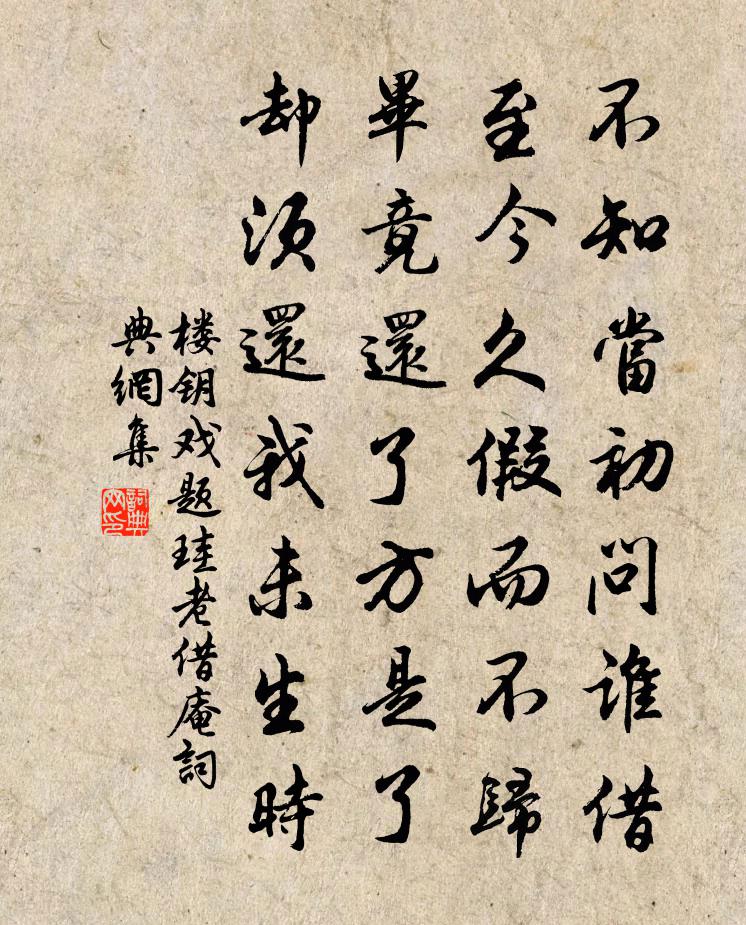 不知當初問誰借
至今久假而不歸
畢竟還了方是了
却須還我未生時
楼钥戏题珪老借庵詞
典網集
詞典
网印